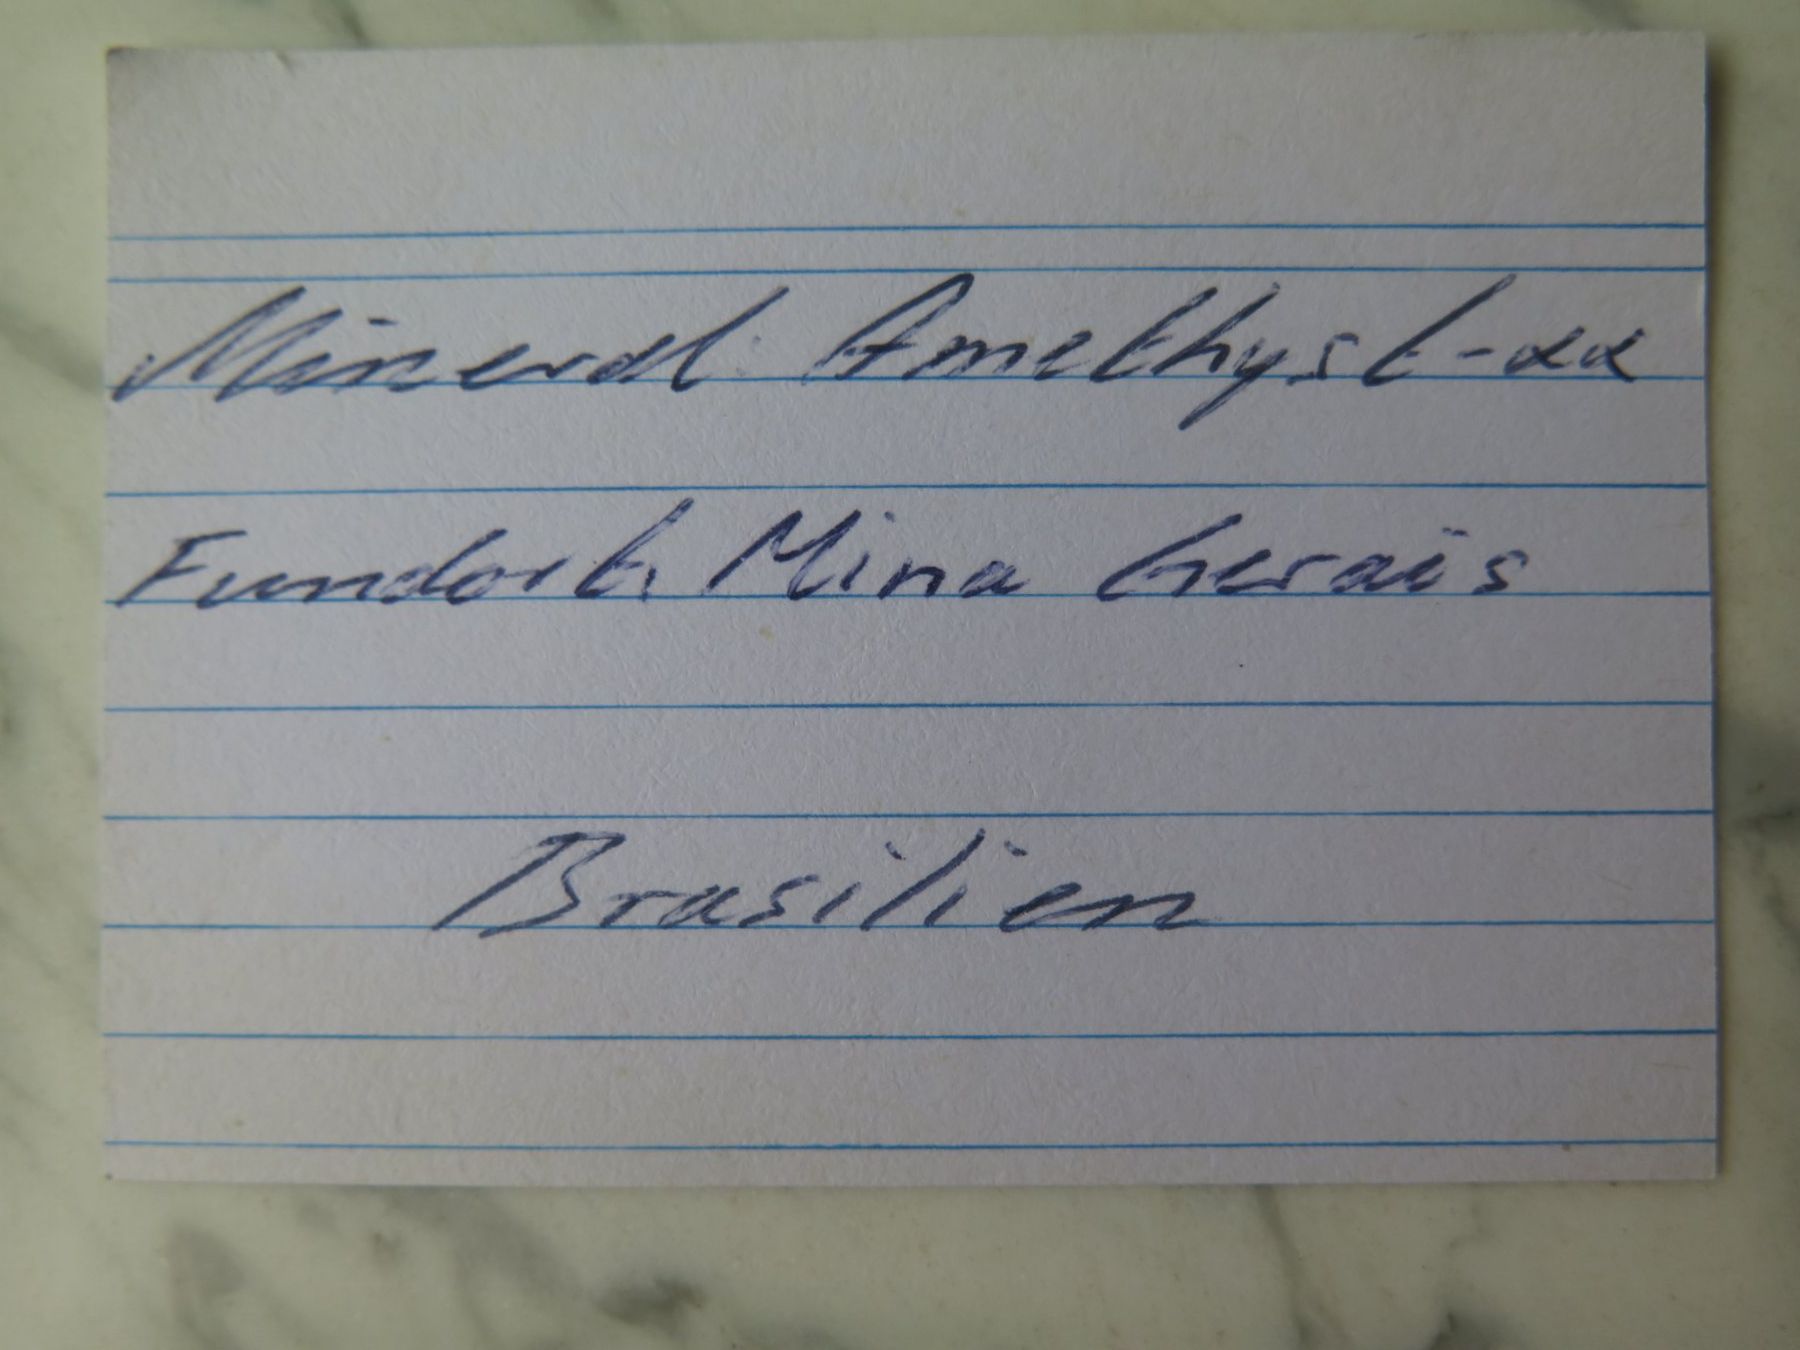 Mineral: Amethyst-xx
Fundort: Mina Gerais
Brasilien